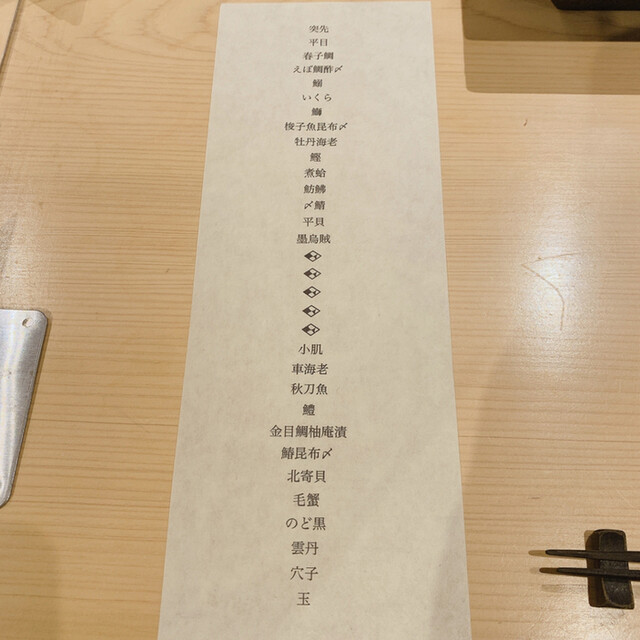 突先
平目
春子鯛
えぼ鯛酢〆
鰯
いくら
鰤
梭子魚昆布〆
牡丹海老
鰹
煮蛤
魴鮄
〆鯖
平貝
墨烏賊
小肌
車海老
秋刀魚
鱧
金目鯛柚庵漬
鰆昆布〆
北寄貝
毛蟹
のど黒
雲丹
穴子
玉